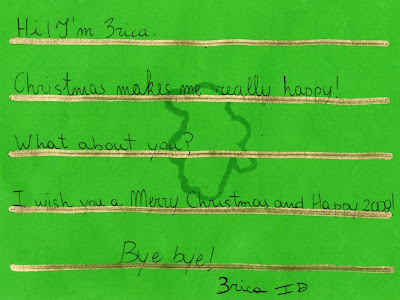 Hi! I'm Erica.
Christmas makes me really happy!
What about you?
I wish you a Merry Christmas and Happy 2009!
Bye bye!
Erica ID